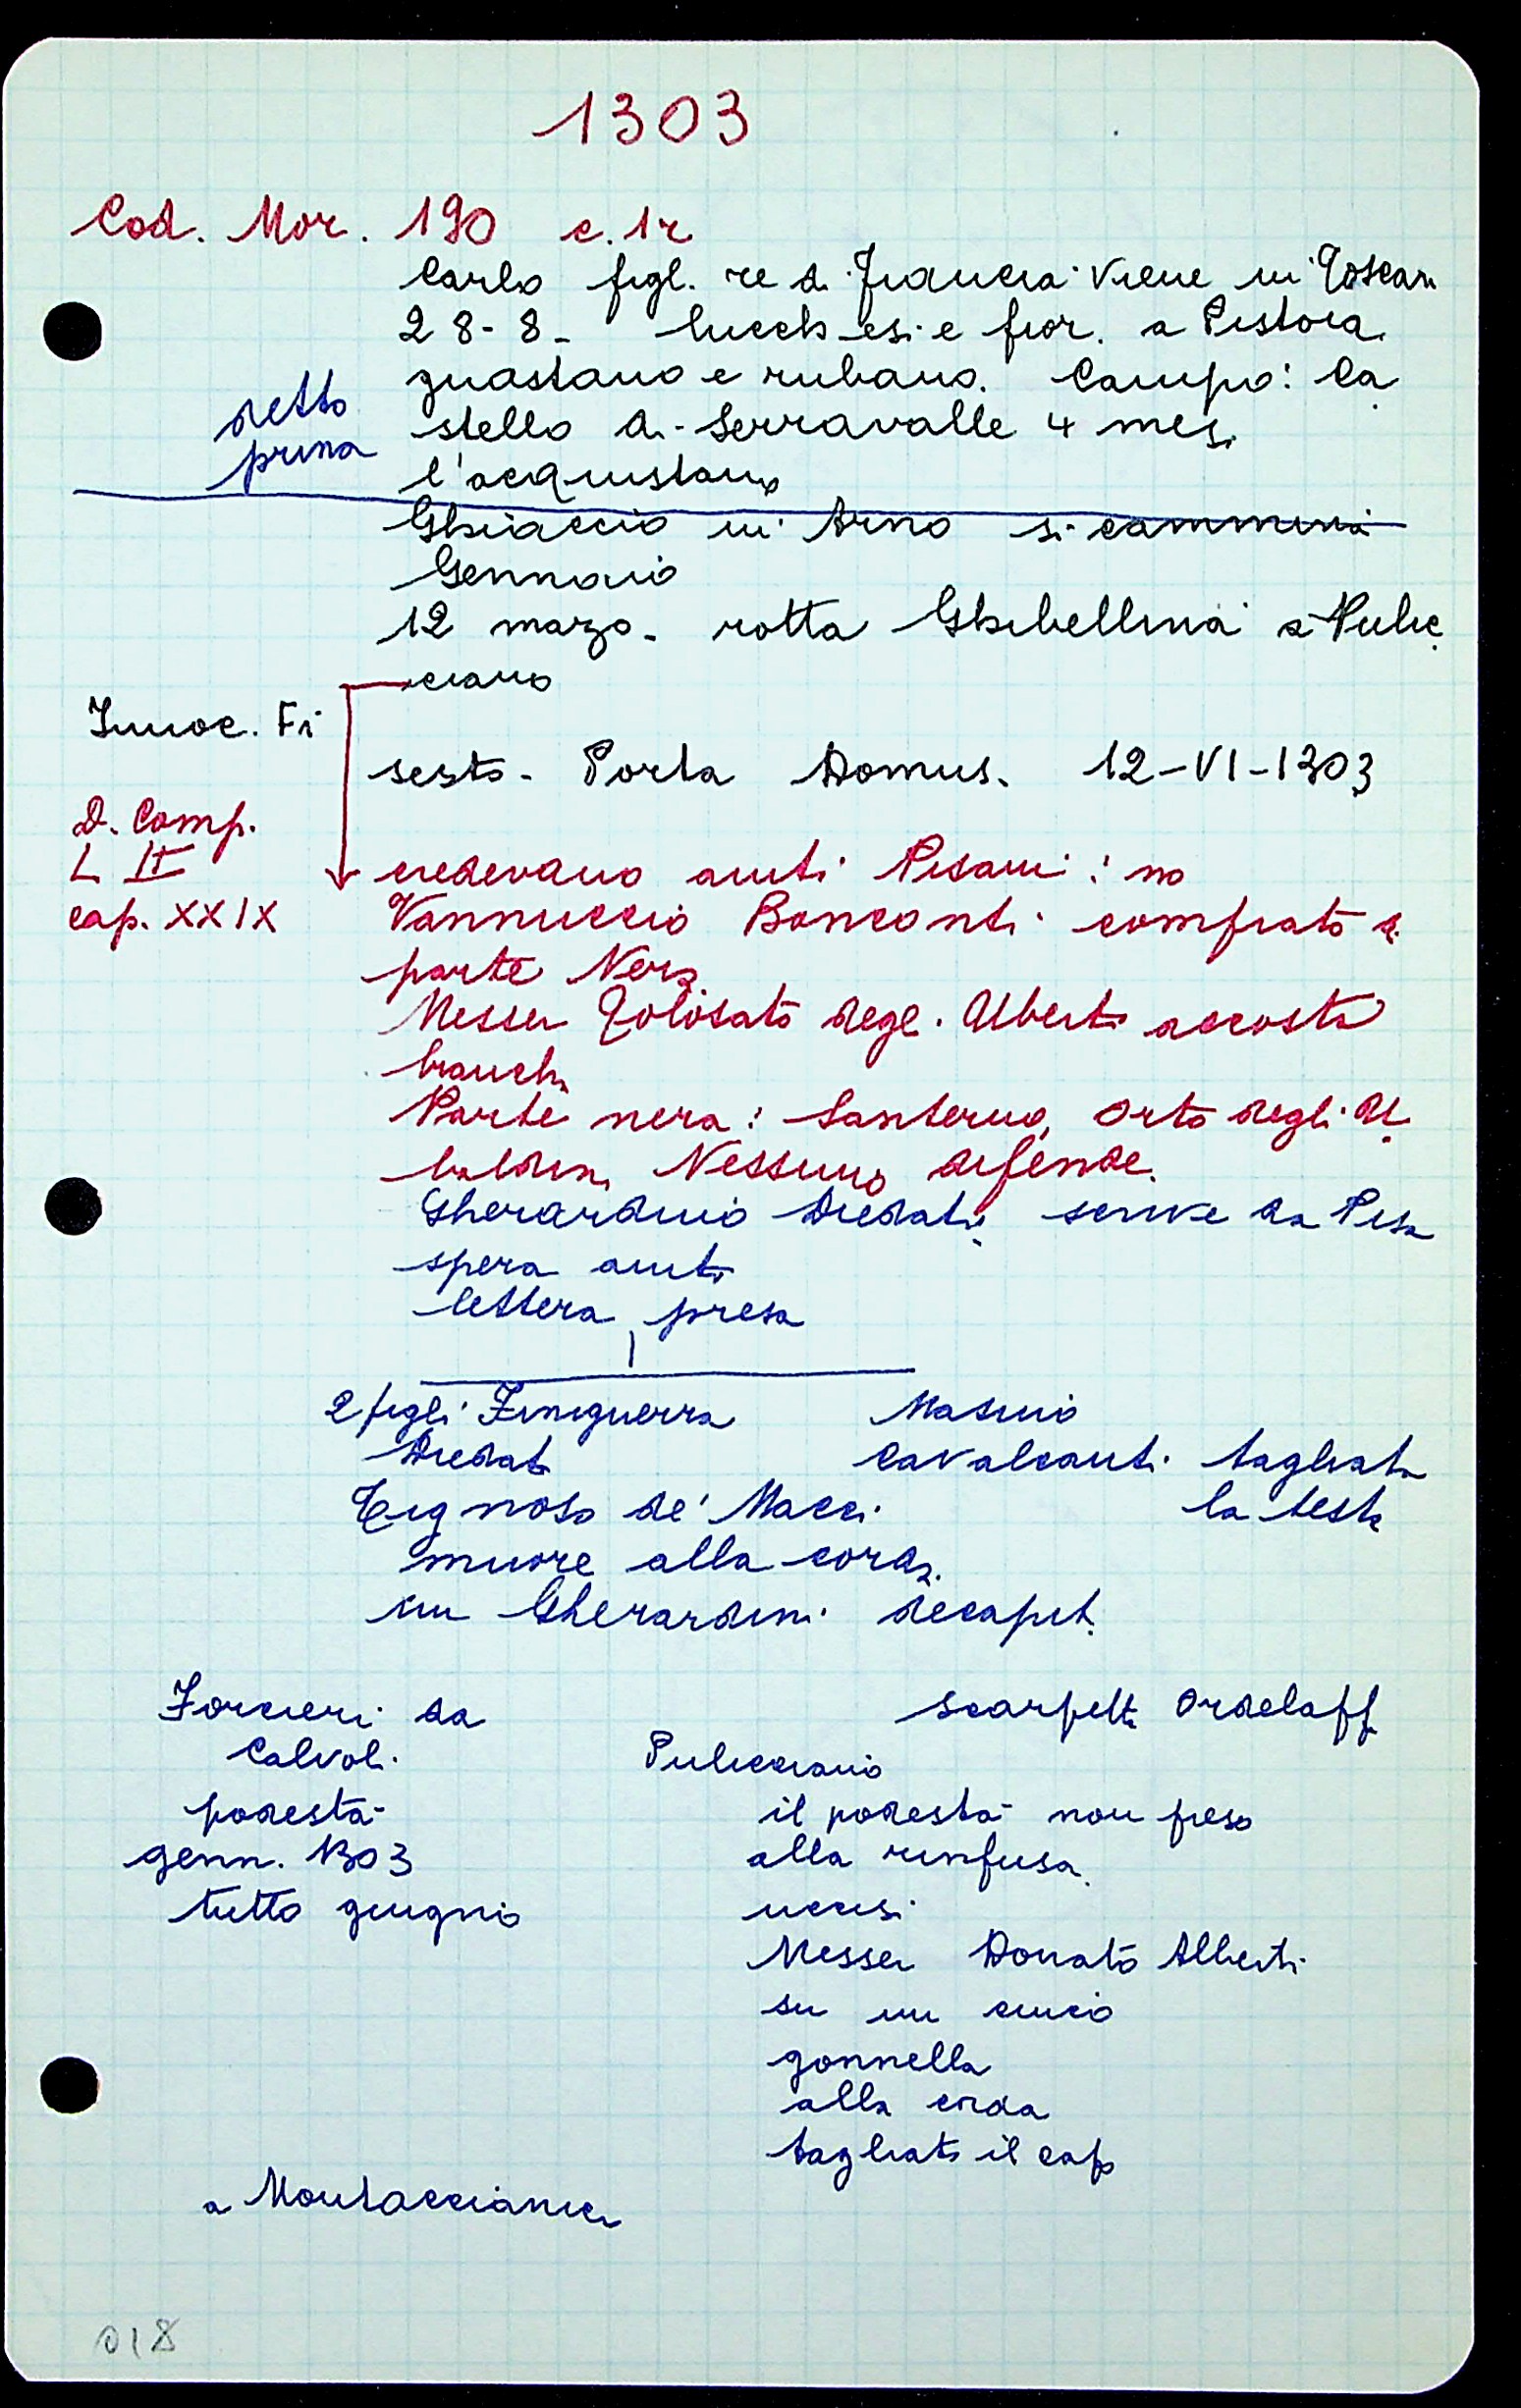 1303
Cod. Mor. 190 c. 1r
Carlo figl. re di Francia viene in Toscan
28-8- lucchesi e fior. a Pistoia
guastano e rubano. Campo: Ca
detto
stello di Serravalle 4 mesi
prima
l'acquistano
Ghiaccio in Arno si cammina
Gennaio
12 marzo - rotta Ghibellina a Pulic
ciano
Innoc. Fi
sesto - Porta Domus. 12-VI-1303
D. Comp.
L II
cap. XXIX
credevano aiuti Pisani: no
Vannuccio Bonconti comprato da
parte Nera
Messer Tolosato degl. Uberti accosta
bianchi
Parte nera: Santerno, Orto degli U
baldini Nessuno difende.
Gherarduio Diedati scrive da Pisa
spera aiuti
lettera presa
2 figli Finiguerra
Diedati
Masino
Cavalcanti tagliata
la testa
Tignoso de' Macci
muore alla corda.
un Gherardini decapit.
Forcieri da
Calvoli
podestà
genn. 1303
tutto giugno
Scarpetta Ordelaff
Pulicciano
il podestà non preso
alla rinfusa
uccisi
Messer Donato Alberti
su un ciucio
gonnella
alla corda
tagliato il capo
a Montaccianico
018